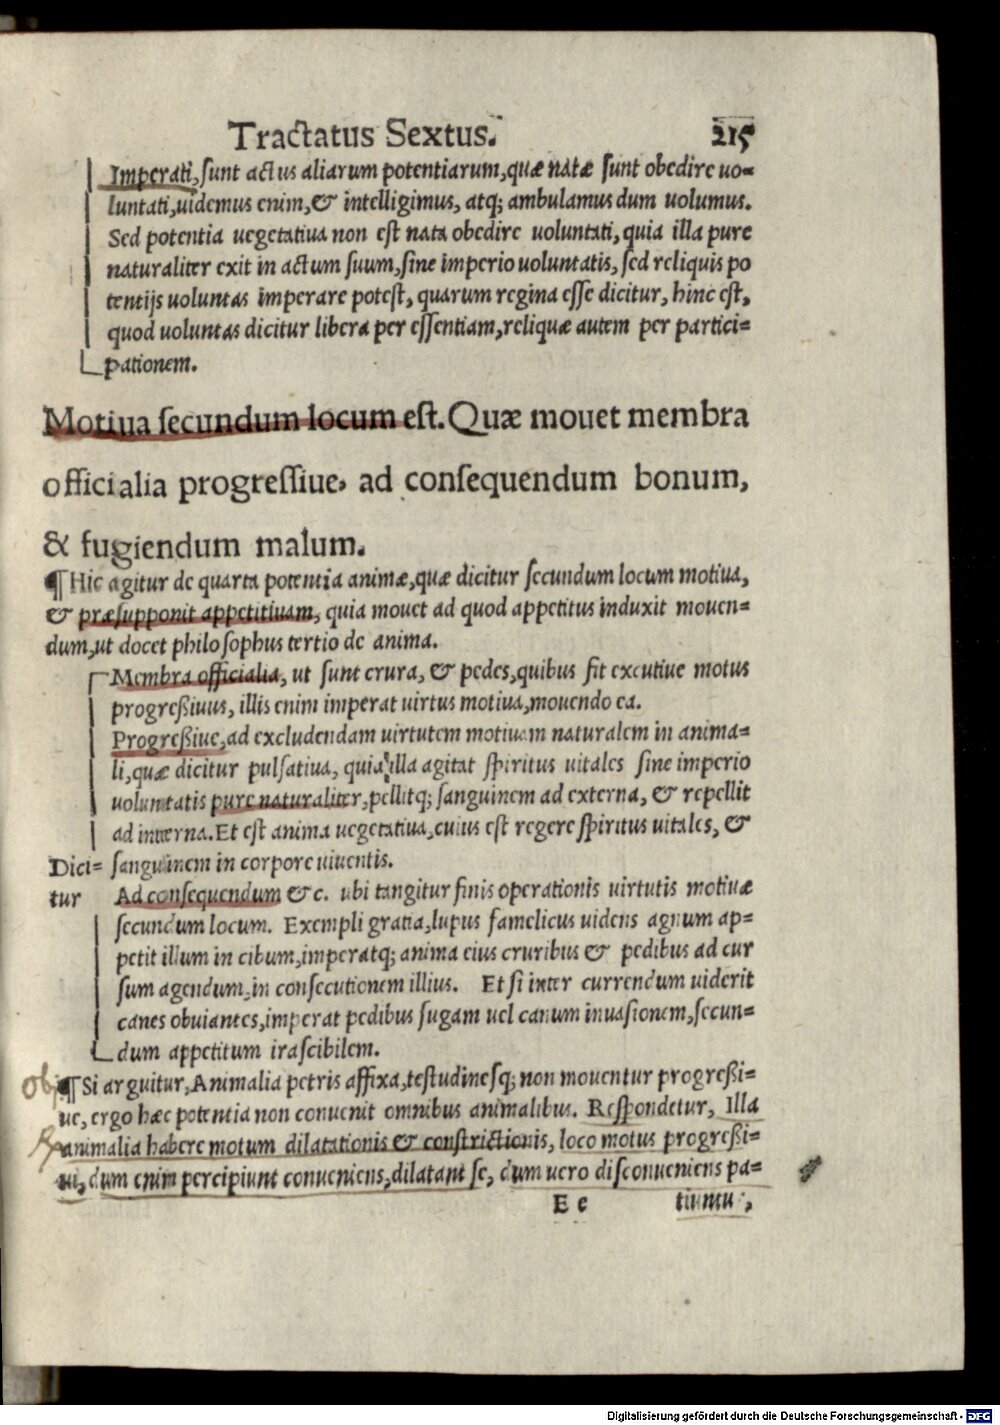 Tractatus Sextus. 215
Imperati, sunt actus aliarum potentiarum, quæ natæ sunt obedire uo=
luntati, uidemus enim, & intelligimus, atq; ambulamus dum uolumus.
Sed potentia uegetatiua non est nata obedire uoluntati, quia illa pure
naturaliter exit in actum suum, sine imperio uoluntatis, sed reliquis po
tentijs uoluntas imperare potest, quarum regina esse dicitur, hinc est,
quod uoluntas dicitur libera per essentiam, reliquæ autem per partici=
pationem.
Motiua secundum locum est. Quæ mouet membra
officialia progressiue, ad consequendum bonum,
& fugiendum malum.
¶ Hic agitur de quarta potentia animæ, quæ dicitur secundum locum motiua,
& præsupponit appetitiuam, quia mouet ad quod appetitus induxit mouen=
dum, ut docet philosophus tertio de anima.
Membra officialia, ut sunt crura, & pedes, quibus fit executiue motus
progreßiuus, illis enim imperat uirtus motiua, mouendo ea.
Progreßiue, ad excludendam uirtutem motiuam naturalem in anima=
li, quæ dicitur pulsatiua, quia illa agitat spiritus uitales sine imperio
uoluntatis pure naturaliter, pellitq; sanguinem ad externa, & repellit
ad interna. Et est anima uegetatiua, cuius est regere spiritus uitales, &
Dici= sanguinem in corpore uiuentis.
tur Ad consequendum &c. ubi tangitur finis operationis uirtutis motiuæ
secundum locum. Exempli gratia, lupus famelicus uidens agnum ap=
petit illum in cibum, imperatq; anima eius cruribus & pedibus ad cur
sum agendum, in consecutionem illius. Et si inter currendum uiderit
canes obuiantes, imperat pedibus fugam uel canum inuasionem, secun=
dum appetitum irascibilem.
Obj ¶ Si arguitur, Animalia petris affixa, testudinesq; non mouentur progreßi=
ue, ergo hæc potentia non conuenit omnibus animalibus. Respondetur, Illa
animalia habere motum dilatationis & constrictionis, loco motus progreßi=
ui, dum enim percipiunt conueniens, dilatant se, dum uero disconueniens pa=
E e tiuntur,